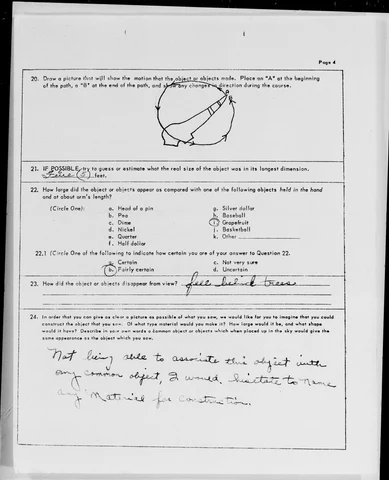 Page 4
20. Draw a picture that will show the motion that the object or objects made. Place an "A" at the beginning
of the path, a "B" at the end of the path, and show any changes in direction during the course.
A
B
21. IF POSSIBLE, try to guess or estimate what the real size of the object was in its longest dimension.
Five (5) feet.
22. How large did the object or objects appear as compared with one of the following objects held in the hand
and at about arm's length?
(Circle One):
a. Head of a pin
b. Pea
c. Dime
d. Nickel
e. Quarter
f. Half dollar
g. Silver dollar
h. Baseball
i. Grapefruit
j. Basketball
k. Other
22.1 (Circle One of the following to indicate how certain you are of your answer to Question 22.
a. Certain
b. Fairly certain
c. Not very sure
d. Uncertain
23. How did the object or objects disappear from view? fell behind trees
24. In order that you can give as clear a picture as possible of what you saw, we would like for you to imagine that you could
construct the object that you saw. Of what type material would you make it? How large would it be, and what shape
would it have? Describe in your own words a common object or objects which when placed up in the sky would give the
same appearance as the object which you saw.
Not being able to associate this object with
any common object, I would hesitate to name
any material for construction.